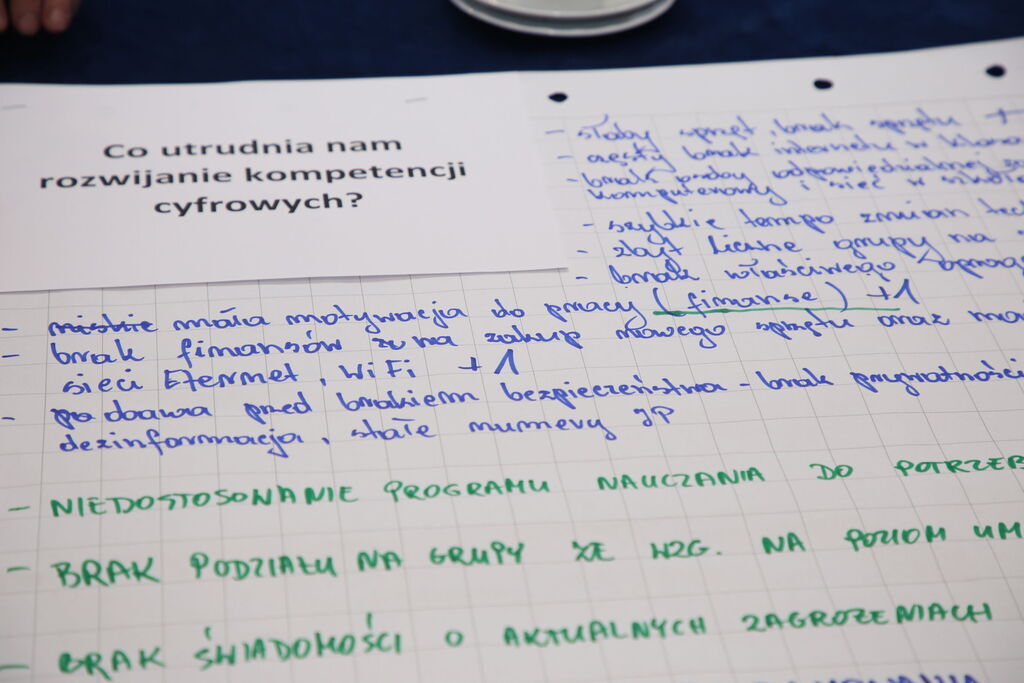 Co utrudnia nam
rozwijanie kompetencji
cyfrowych?
- słaby sprzęt, brak sprzętu +
- częsty brak internetu w klasa
- brak osoby odpowiedzialnej za
komputerowy i sieć w szkole
- szybkie tempo zmian tec
- zbyt liczne grupy na
- brak właściwego oprog
- mała motywacja do pracy (finanse) +1
- brak finansów na zakup nowego sprzętu oraz
sieci Eternet, WiFi +1
- obawa przed brakiem bezpieczeństwa - brak prywatności
dezinformacja, stałe numery IP
- NIEDOSTOSOWANIE PROGRAMU NAUCZANIA DO POTRZEB
- BRAK PODZIAŁU NA GRUPY ZE WZG. NA POZIOM UM
- BRAK ŚWIADOMOŚCI O AKTUALNYCH ZAGROŻENIACH